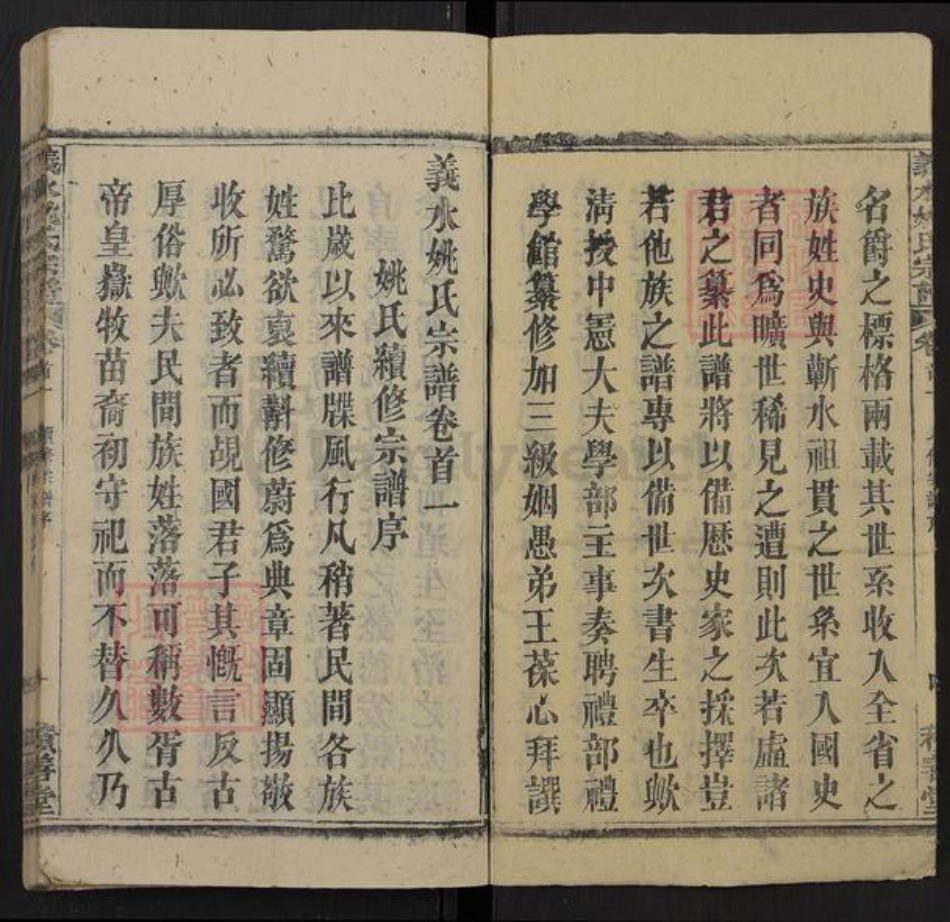 名爵之標格兩載其世系收入全省之
族姓史與蘄水祖貫之世系宜入國史
者同爲曠世稀見之遭則此次若虛諸
君之纂此譜將以備歷史家之採擇豈
若他族之譜專以備世次書生卒也歟
淸授中憲大夫學部主事奏聘禮部禮
學館纂修加三級姻愚弟王葆心拜譔
義水姚氏宗譜卷首一
姚氏續修宗譜序
比歲以來譜牒風行凡稍著民間各族
姓騖欲裒續斠修蔚爲典章固顯揚敬
收所必致者而覘國君子其慨言反古
厚俗歟夫民間族姓落落可稱數胥古
帝皇嶽牧苗裔初守祀而不替久久乃
義水姚氏宗譜
卷首一
續修宗譜序
積善堂